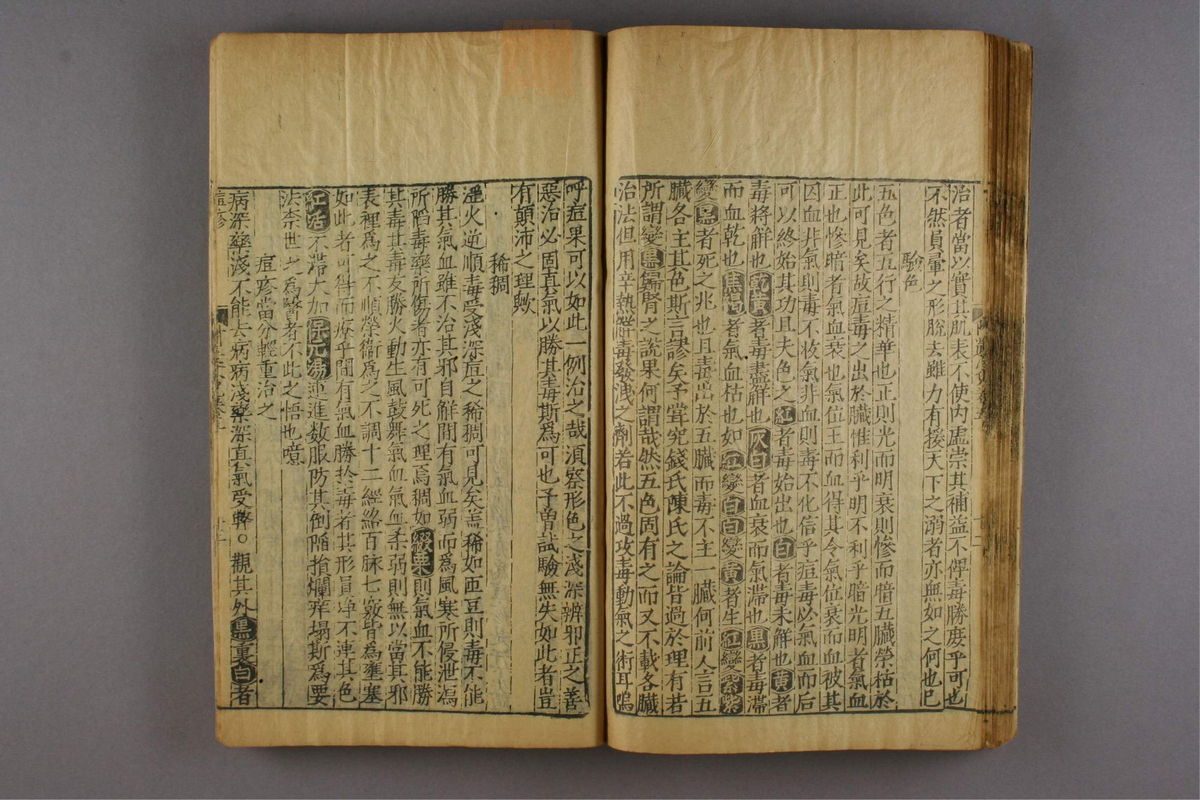 治者當以實其肌表不使内虚崇其補益不俾毒勝庻乎可也
不然員暈之形脫去雖力有援天下之溺者亦無如之何也已
驗色
五色者五行之精華也正則光而明衰則慘而暗五臟榮枯於
此可見矣故痘毒之出於臟惟利乎明不利乎暗光明者氣血
正也慘暗者氣血衰也氣位王而血得其令氣位衰而血被其
囚血非氣則毒不收氣非血則毒不化信乎痘毒必氣血而后
可以終始其功且夫色之紅者毒始出也白者毒未觧也黄者
毒將觧也乾黄者毒盡觧也灰白者血衰而氣滯也黑者毒滯
而血乾也焦褐者氣血枯也如紅變白白變黄者生紅變紫紫
變黑者死之兆也且毒出於五臟而毒不主一臟何前人言五
臟各主其色斯言謬矣予甞究錢氏陳氏之論皆過於理有若
所謂變黒歸腎之説果何謂哉然五色固有之而又不載各臟
治法但用辛熱觧毒發洩之劑若此不過攻毒動氣之術耳嗚
呼痘果可以如此一例治之哉湏察形色之淺深辨邪正之善
惡治必固真氣以勝其毒斯爲可也予曽試驗無失如此者豈
有顛沛之理歟
稀稠
淫火逆順毒受淺深痘之稀稠可見矣盖稀如匝豆則毒不能
勝其氣血雖不治其邪自觧間有氣血弱而爲風寒所侵泄瀉
所䧟毒藥所傷者亦有可死之理焉稠如綴粟則氣血不能勝
其毒其毒反勝火動生風鼓舞氣血氣血柔弱則無以當其邪
表裡爲之不順榮衞爲之不調十二經絡百脉七竅皆爲壅塞
如此者可得而療乎間有氣血勝於毒者其形員净不連其色
紅活不滯大加保元湯迎進数服防其倒䧟搶爛痒塌斯爲要
法柰世之爲醫者不此之悟也噫
痘疹當分輕重治之
病深藥淺不能去病病淺藥深真氣受弊○觀其外黒裏白者
痘疹